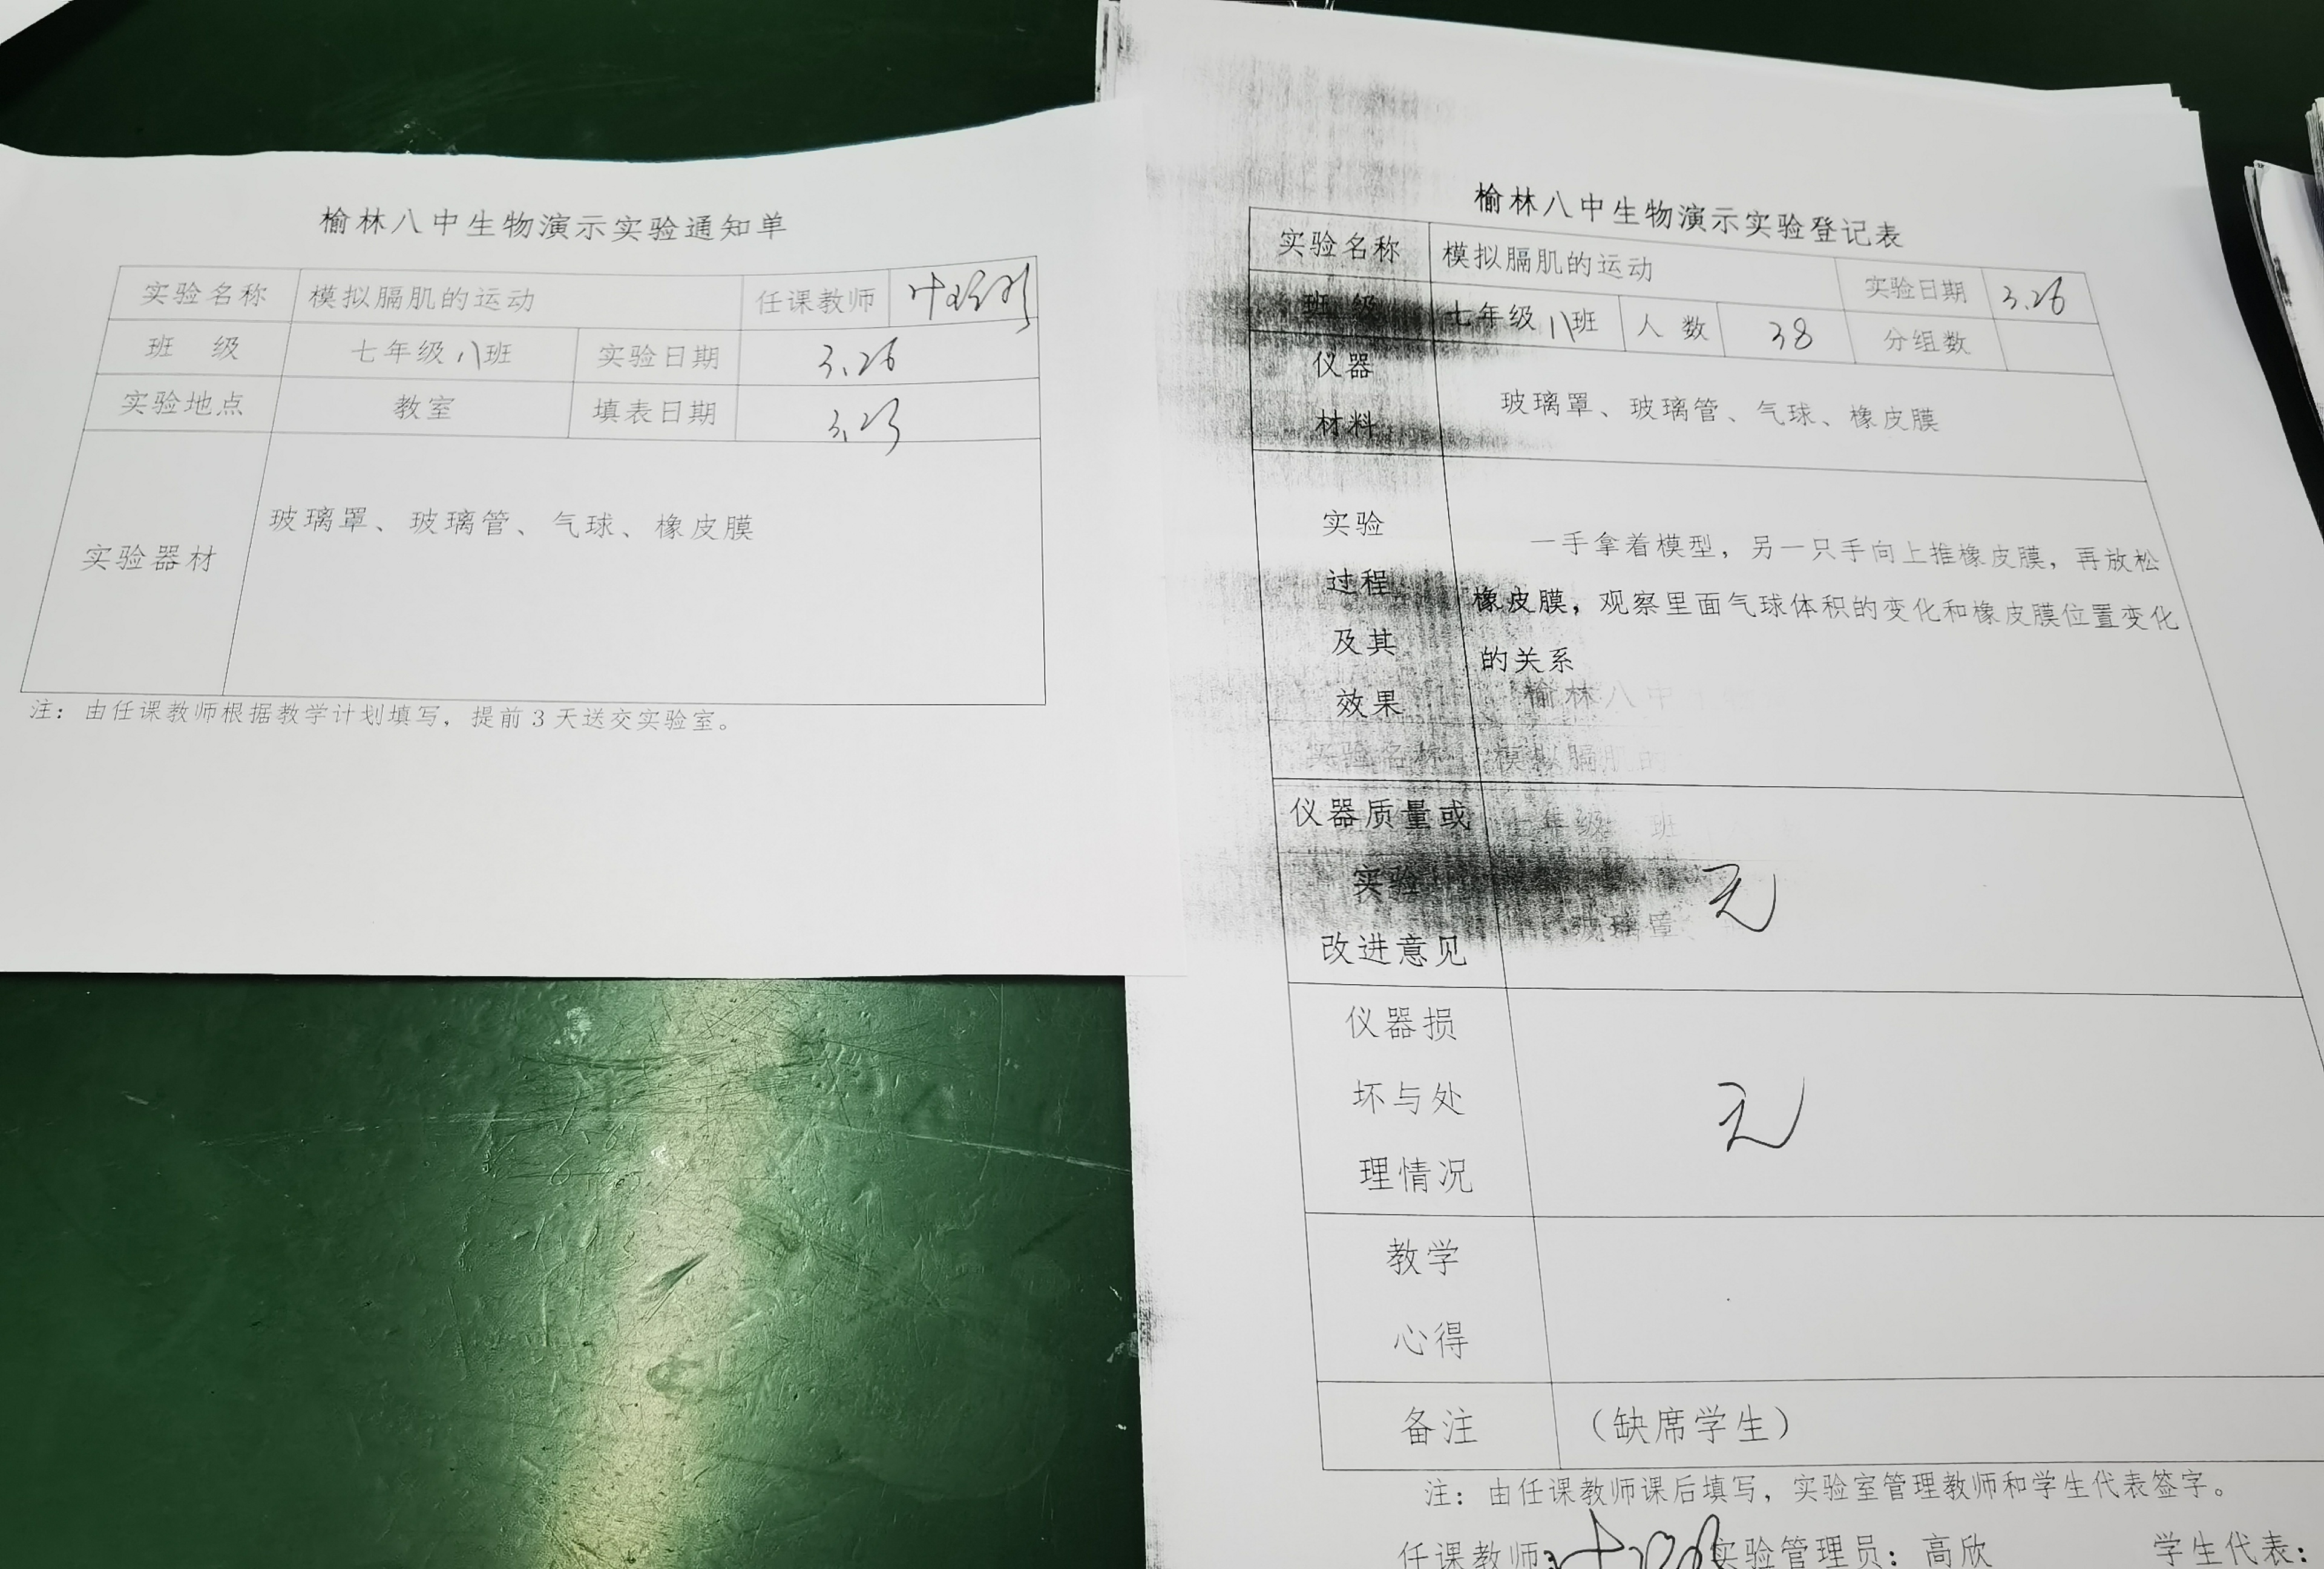 榆林八中生物演示实验通知单
实验名称 模拟膈肌的运动 任课教师
班 级 七年级八班 实验日期 3.26
实验地点 教室 填表日期 3.23
实验器材 玻璃罩、玻璃管、气球、橡皮膜
注：由任课教师根据教学计划填写，提前3天送交实验室。
榆林八中生物演示实验登记表
实验名称 模拟膈肌的运动 实验日期 3.26
班 级 七年级八班 人 数 38 分组数
仪器
材料
玻璃罩、玻璃管、气球、橡皮膜
实验
过程
及其
效果
一手拿着模型，另一只手向上推橡皮膜，再放松
橡皮膜，观察里面气球体积的变化和橡皮膜位置变化
的关系
榆林八中
实验名称 模拟膈肌的
七年级 班
玻璃罩、
仪器质量或
实验
改进意见
无
仪器损
坏与处
理情况
无
教学
心得
备注 （缺席学生）
注：由任课教师课后填写，实验室管理教师和学生代表签字。
任课教师: 实验管理员：高欣 学生代表：